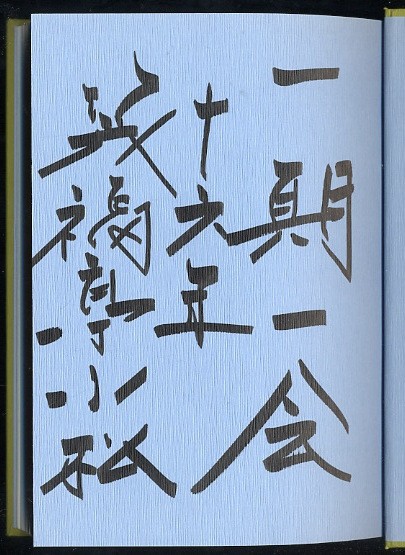 一期一会
十六年
笑福亭小松